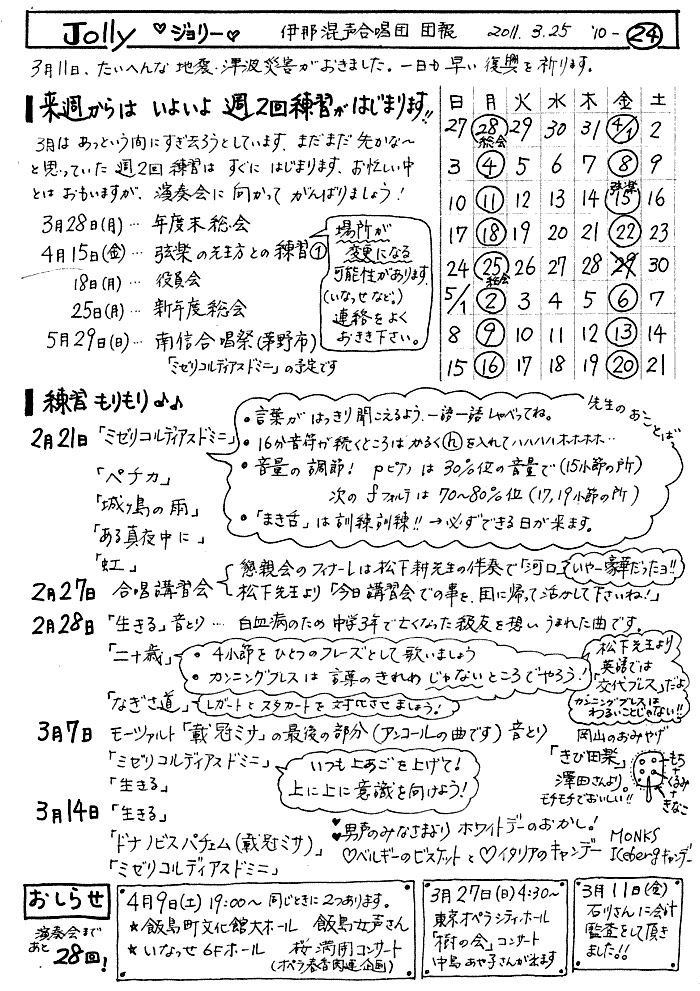 Jolly ♡ジョリー♡ 伊那混声合唱団 団報 2011.3.25 '10-㉔
3月11日、たいへんな地震・津波災害がおきました。一日も早い復興を祈ります。
来週からは いよいよ 週2回練習がはじまります!!
3月はあっという間にすぎ去ろうとしています。まだまだ先かな〜
と思っていた 週2回練習は すぐに はじまります。お忙しい中
とは おもいますが、演奏会に向かって がんばりましょう!
3月28日(月) … 年度末総会
4月15日(金) … 弦楽の先生方との練習①
18日(月) … 役員会
25日(月) … 新年度総会
5月29日(日) … 南信合唱祭(茅野市)
「ミゼリコルディアスドミニ」の予定です
場所が
変更になる
可能性があります。
(いなっせなど。)
連絡をよく
おきき下さい。
日 月 火 水 木 金 土
27 28 29 30 31 4/1 2
総会
3 4 5 6 7 8 9
弦楽
10 11 12 13 14 15 16
17 18 19 20 21 22 23
24 25 26 27 28 29 30
総会
5/1 2 3 4 5 6 7
8 9 10 11 12 13 14
15 16 17 18 19 20 21
練習もりもり♪♪
先生のおことば
2月21日「ミゼリコルディアスドミニ」
「ペチカ」
「城ヶ島の雨」
「ある真夜中に」
「虹」
• 言葉がはっきり聞こえるよう、一語一語しゃべってね。
• 16分音符が続くところはかるくⓗを入れてハハハハホホホホ…
• 音量の調節! pピアノは30%位の音量で(15小節の所)
次の fフォルテは70〜80%位(17,19小節の所)
• 「まき舌」は訓練訓練!! →必ずできる日が来ます。
2月27日 合唱講習会
懇親会のフィナーレは松下耕先生の伴奏で「河口」 いやー豪華だったヨ!!
松下先生より「今日講習会での事を、団に帰って活かして下さいね!」
2月28日「生きる」音とり … 白血病のため中学3年で亡くなった級友を想いうまれた曲です。
「二十歳」
• 4小節をひとつのフレーズとして歌いましょう
• カンニングブレスは 言葉のきれめ じゃないところでやろう!
松下先生より
英語では
「交代ブレス」だよ
カンニングブレスは
わるいことじゃない!!
「なぎさ道」レガートとスタカートを対比させましょう!
3月7日 モーツァルト「戴冠ミサ」の最後の部分(アンコールの曲です)音とり
「ミゼリコルディアスドミニ」
「生きる」
いつも上あごを上げて!
上に上に意識を向けよう!
岡山のおみやげ
「きび団楽」
澤田さんより。
モチモチでおいしい!!
もち
+
くるみ
+
きなこ
3月14日「生きる」
「ドナノビスパチェム(戴冠ミサ)」
「ミゼリコルディアスドミニ」
♥男声のみなさまより ホワイトデーのおかし!
♡ベルギーのビスケットと♡イタリアのキャンデー
MONKS
Icebergキャンデー
おしらせ
演奏会まで
あと28回!
4月9日(土) 19:00〜 同じときに2つあります。
★飯島町文化館大ホール 飯島女声さん
★いなっせ6Fホール 桜満開コンサート
(オペラ春香関連企画)
3月27日(日)4:30〜
東京オペラシティホール
「樹の会」コンサート
中島あや子さんが出ます
3月11日(金)
石川さんに会計
監査をして頂き
ました!!